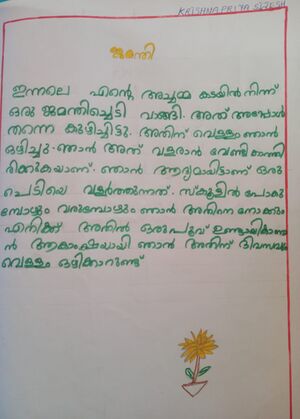 KRISHNAPRIYA SIJESH
ജമന്തി
ഇന്നലെ എന്റെ അച്ഛമ്മ കടയിൽ നിന്ന്
ഒരു ജമന്തിച്ചെടി വാങ്ങി. അത് അപ്പോൾ
തന്നെ കുഴിച്ചിട്ടു. അതിന് വെള്ളം ഞാൻ
ഒഴിച്ചു. ഞാൻ അത് വളരാൻ വേണ്ടി കാത്തി
രിക്കുകയാണ്. ഞാൻ ആദ്യമായിട്ടാണ് ഒരു
ചെടിയെ വളർത്തുന്നത്. സ്കൂളിൽ പോകു
മ്പോഴും വരുമ്പോഴും ഞാൻ അതിനെ നോക്കും
എനിക്ക് അതിൽ ഒരു പൂവ് ഉണ്ടായികാണാ
ൻ ആകാംഷയായി ഞാൻ അതിന് ദിവസവും
വെള്ളം ഒഴിക്കാറുണ്ട്